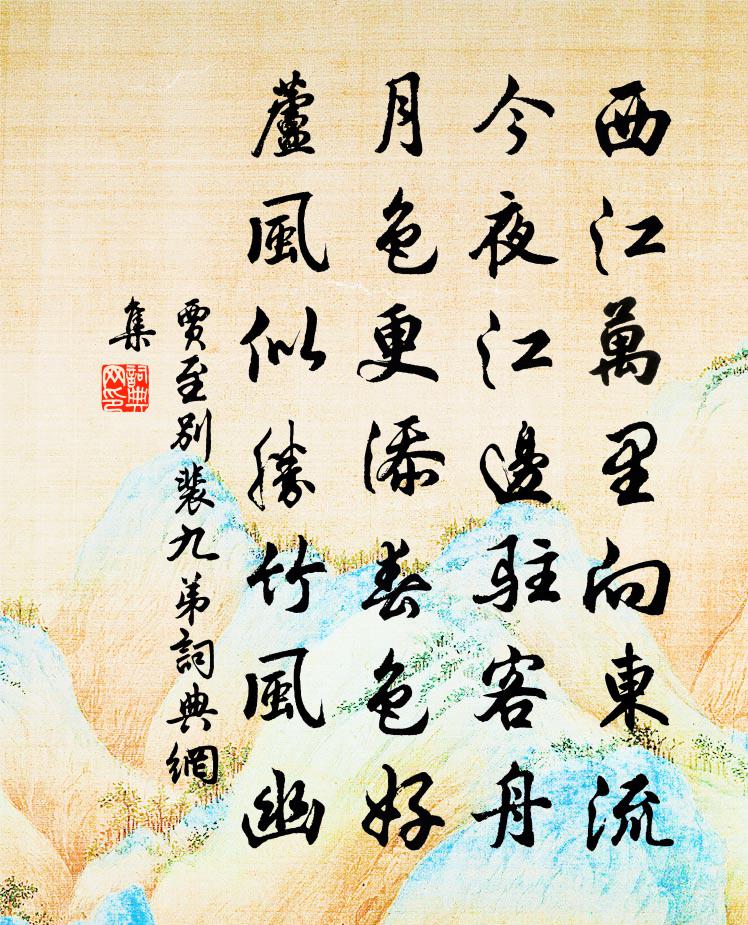 西江萬里向東流
今夜江邊駐客舟
月色更添春色好
蘆風似勝竹風幽
賈至別裴九弟詞典網
集
詞典
网印